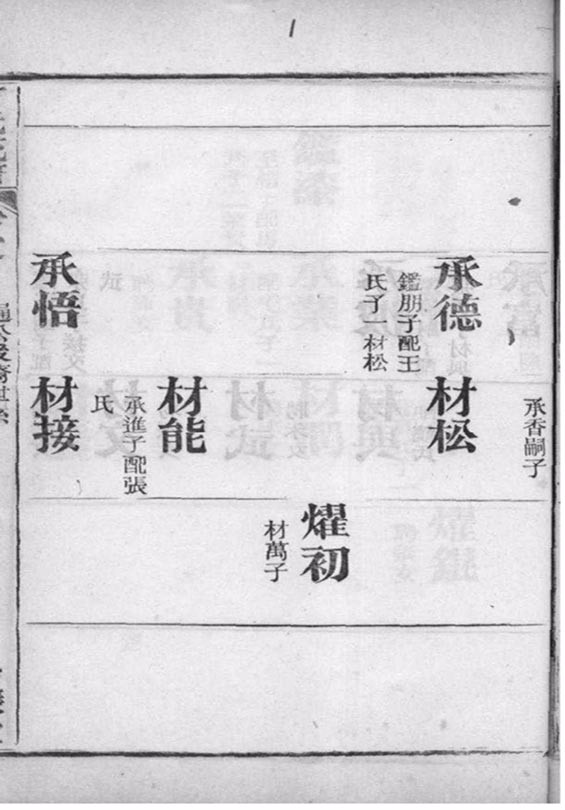 1
承香嗣子
承德
鑑朋子配王
氏子一材松
材松
燿初
材萬子
材能
承進子配張
氏
承悟
材接